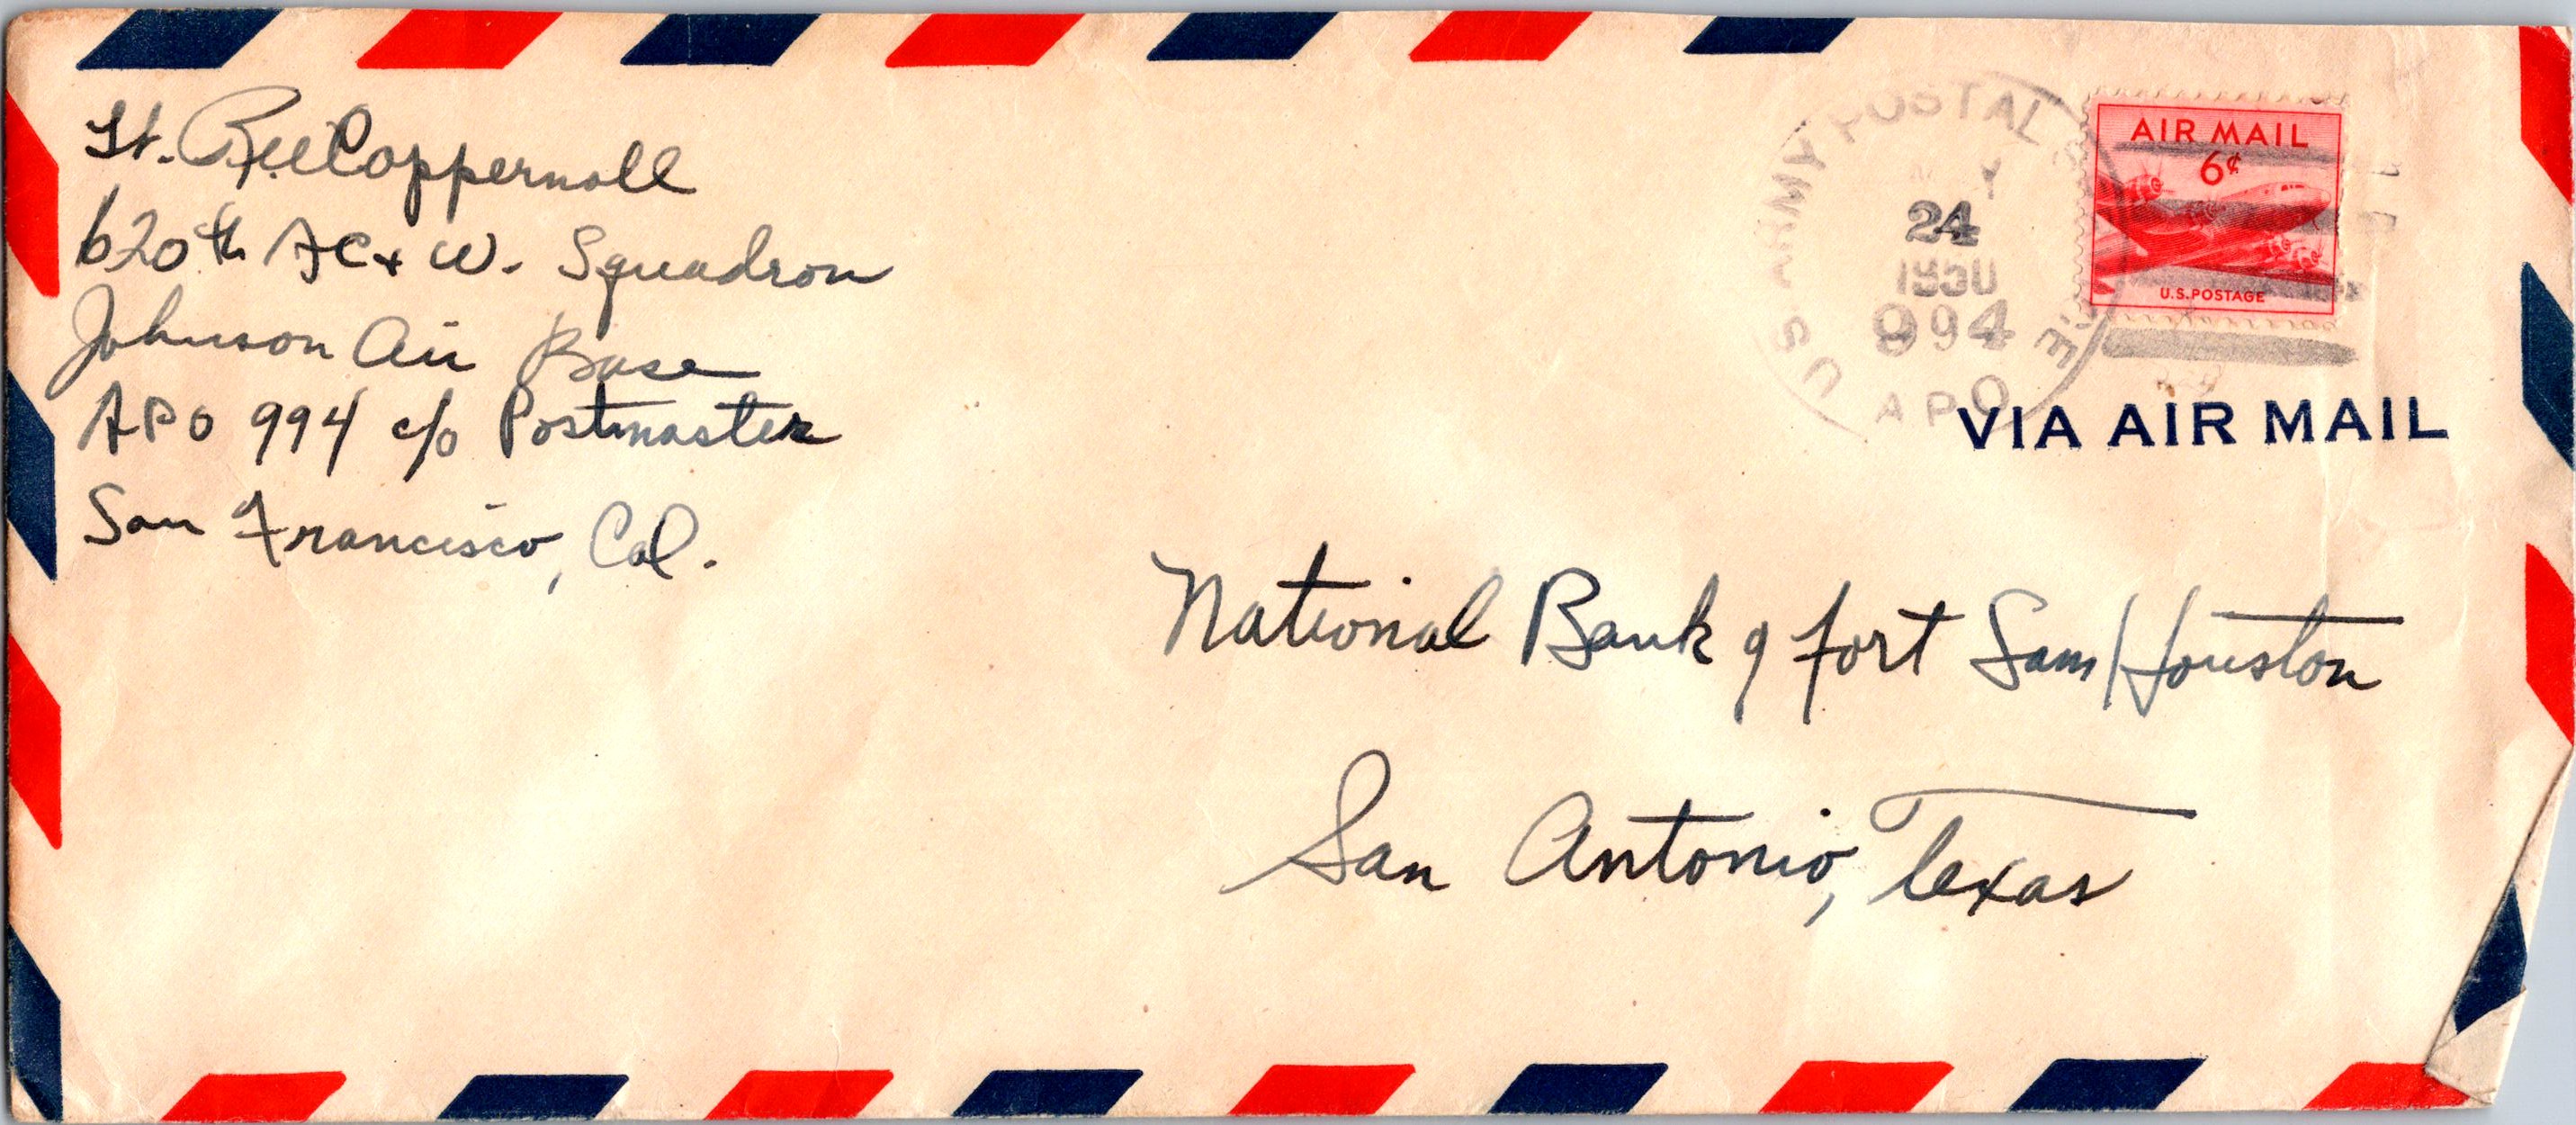 Lt. Coppernoll
620th AC + W. Squadron
Johnson Air Base
APO 994 c/o Postmaster
San Francisco, Cal.
U.S. ARMY POSTAL
24
1950
994
APO
AIR MAIL
6¢
U.S. POSTAGE
VIA AIR MAIL
National Bank of Fort Sam Houston
San Antonio, Texas